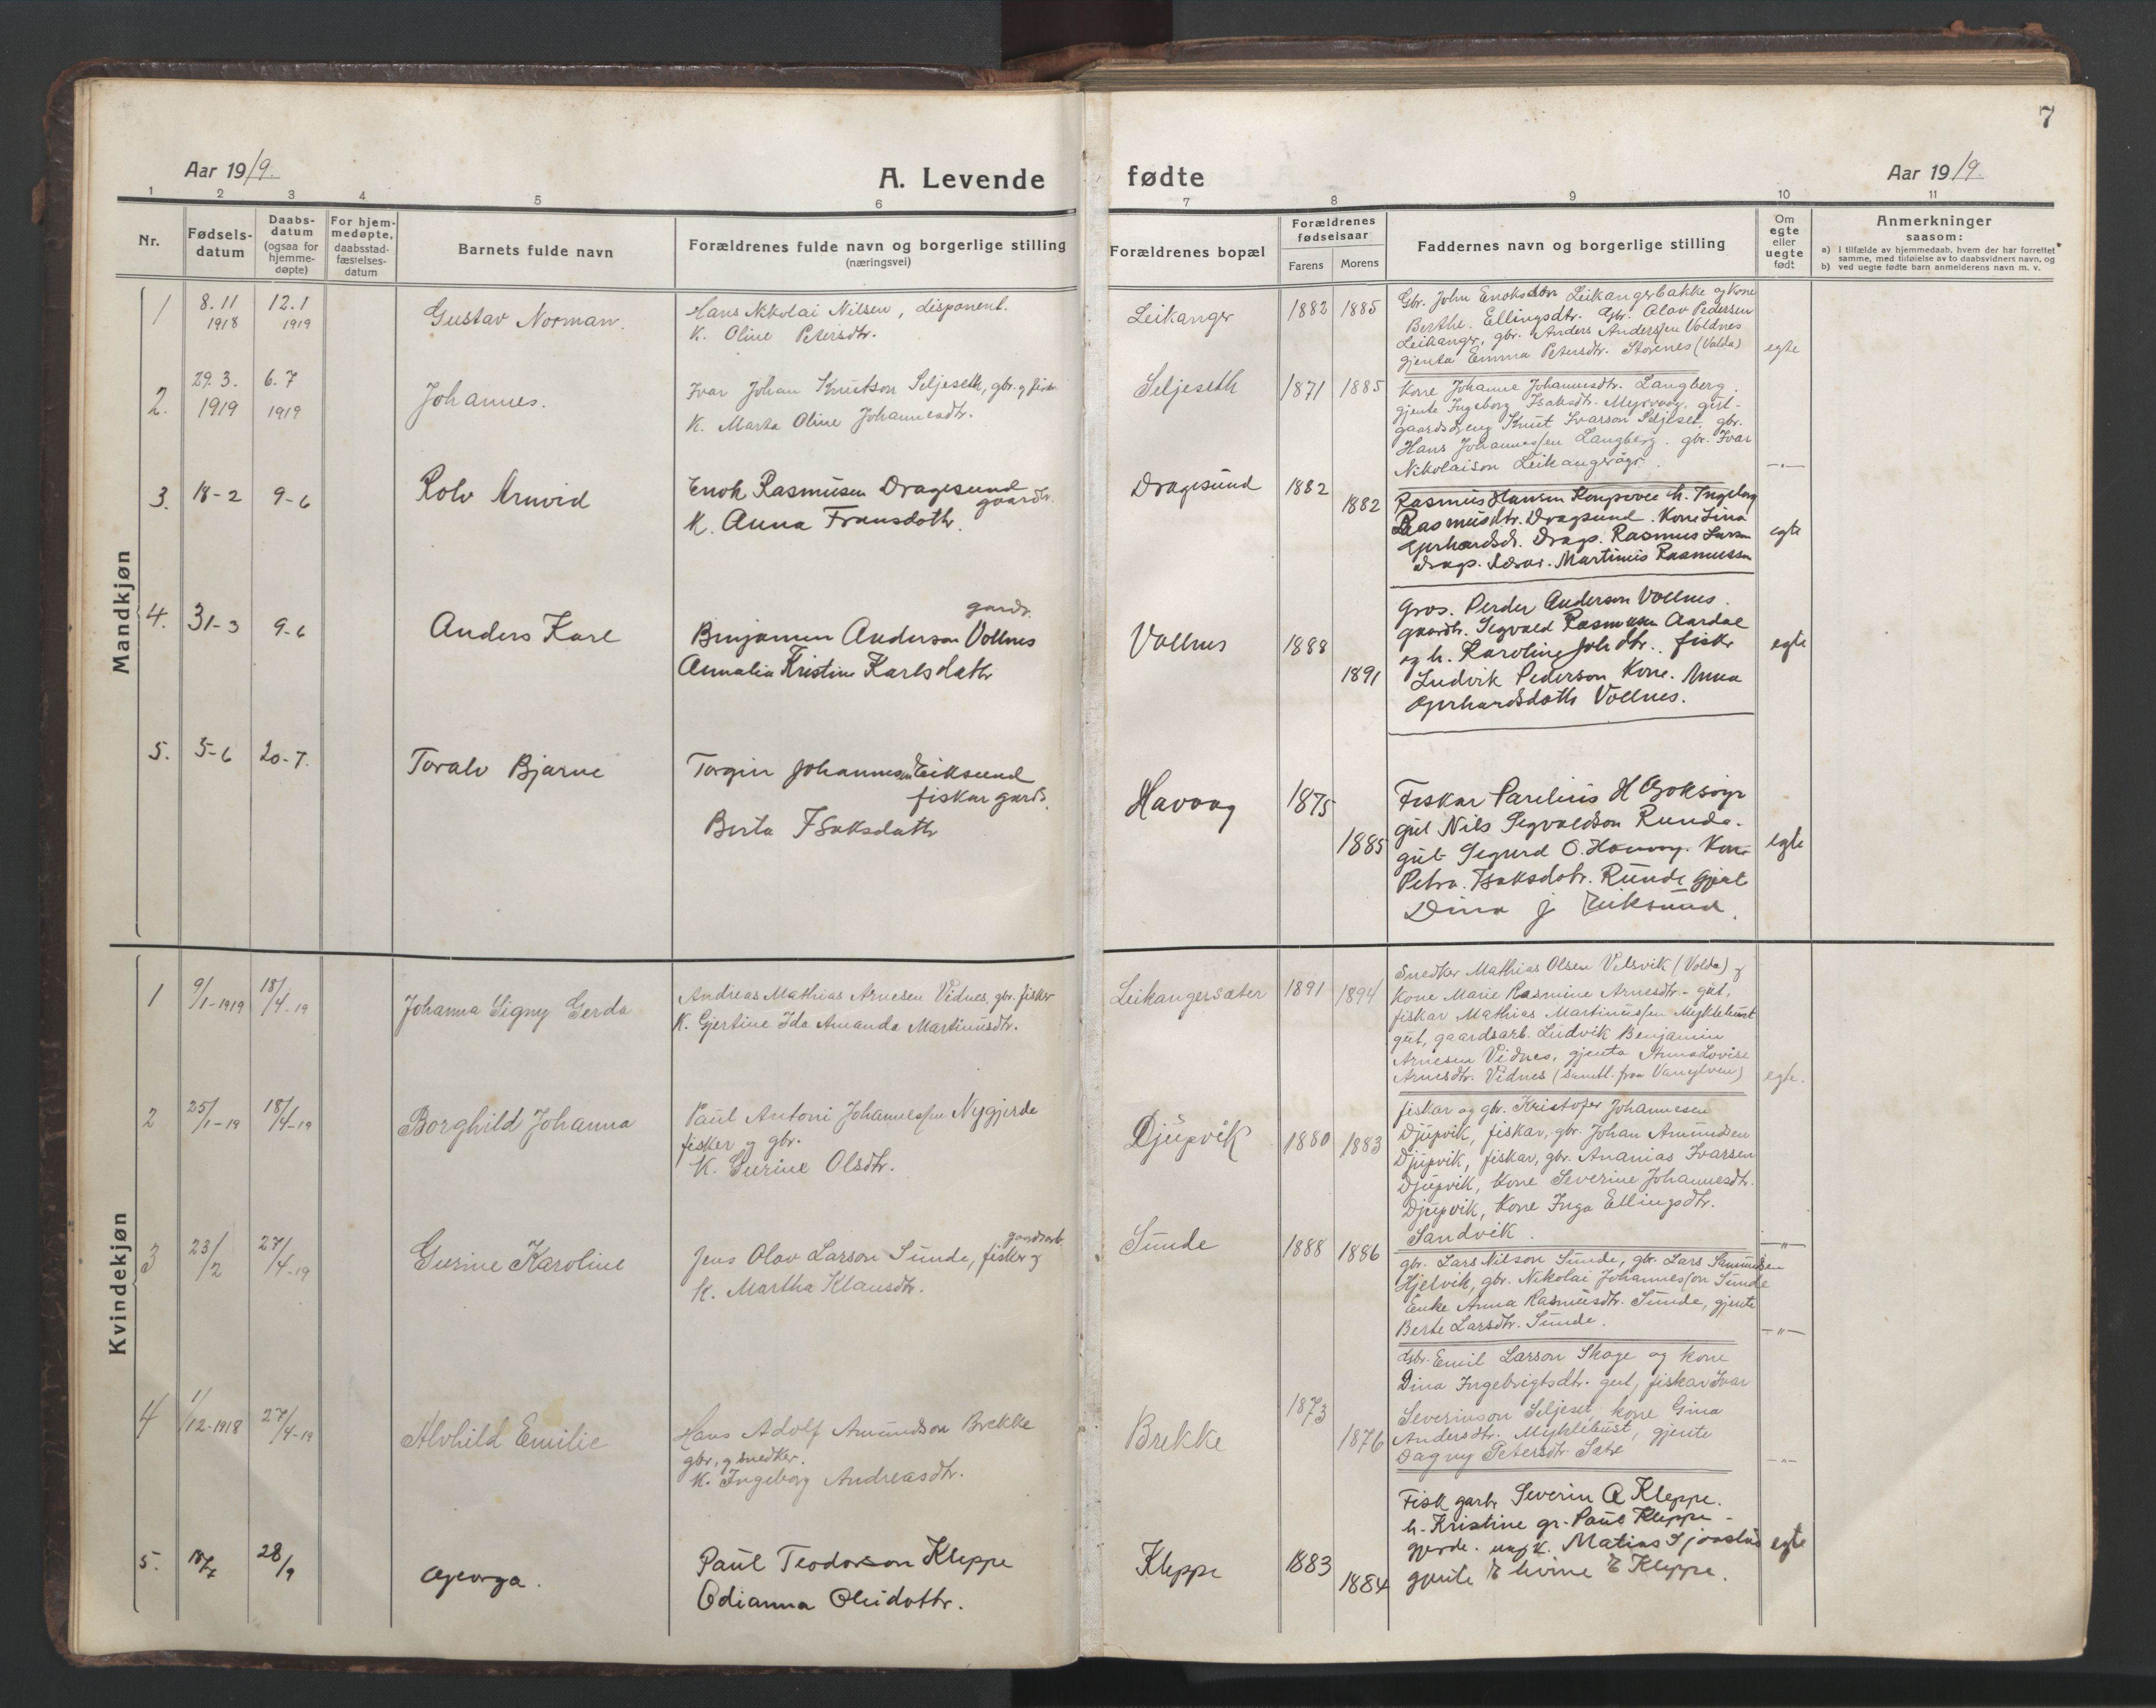 7
Aar 1919.
A. Levende
fødte
Aar 1919.
1 2 3 4 5 6
7 8 9 10 11
Nr.
Fødsels-
datum
Daabs-
datum
(ogsaa for
hjemme-
døpte)
For hjem-
medøpte,
daabsstad-
fæstelses-
datum
Barnets fulde navn
Forældrenes fulde navn og borgerlige stilling
(næringsvei)
Forældrenes bopæl
Forældrenes
fødselsaar
Farens
Morens
Faddernes navn og borgerlige stilling
Om
egte
eller
uegte
født
Anmerkninger
saasom:
a) i tilfælde av hjemmedaab, hvem der har forrettet
samme, med tilføielse av to daabsvidners navn, og
b) ved uegte fødte barn anmelderens navn m. v.
Mandkjøn
1
8.11
1918
12.1
1919
Gustav Norman.
Hans Nikolai Nilsen, disponent.
K. Oline Petersdtr.
Leikanger
1882
1885
Gbr. John Enoksen Leikangerbakke og kone
Berthe Ellingsdtr. Gbr. Olav Pedersen
Leikanger, gbr. Anders Anderssen Voldnes
gjenta Emma Petersdtr. Storenes (Volda)
egte
2.
29.3.
1919
6.7
1919
Johannes.
Ivar Johan Knutson Seljeseth, gbr. og fisker
K. Marta Oline Johannesdtr.
Seljeseth
1871
1885
Kone Johanne Johannesdtr. Langberg.
gjente Ingeborg Isaksdtr. Myrvaag. gut-
gaardsdreng Knut Ivarson Seljeset, gbr.
Hans Johannessen Langberg. gbr. Ivar
Nikolaison Leikanger
-"-
3.
18-2
9-6
Rolv Arnvid
Enok Rasmusen Dragesund
gaardbr.
K. Anna Fransdottr.
Dragesund
1882
1882
Rasmus Hansen h. Ingeborg
Rasmusdtr. Dragsund. Kone Lina
Gerhardsd. Drags. Rasmus Larsen
Drags. Martinus Rasmussen
egte
4.
31-3
9-6
Anders Karl
gardr.
Benjamin Anderson Vollnes
Annalia Kristine Karlsdattr
Vollnes
1888
1891
Peder Anderson Vollnes.
gaardbr. Segvald Rasmusen Aardal
og h. Karoline Joh dtr. fiskr
Ludvik Pederson Kone. Anna
Gerhardsdottr Vollnes.
egte
5.
5-6
20-7.
Toralv Bjarne
Torgin Johannesen Eiksund
fiskar gardr.
Berta Isaksdattr
Havaag
1875
1885
Fiskar Parelius H Goksøyr
gut Nils Segvaldson Runde.
gut Segurd O. Havaag. Kone
Petra. Isaksdotr. Runde Gjent
Dina J Eiksund.
egte
Kvindekjøn
1
9/1-1919
18/4-19
Johanna Signy Gerda
Andreas Mathias Arnesen Vidnes, gbr. fisker
K. Gjertine Ida Amanda Martinusdtr.
Leikangersæter
1891
1894
Snedker Mathias Olsen Velsvik (Volda) og
kone Marie Rasmine Arnesdtr. - gut,
fiskar Mathias Martinussen Myklebust
gut, gaardsarb. Ludvik Benjamin
Arnesen Vidnes, gjenta Anna Lovise
Arnesdtr. Vidnes (samtl. fra Vanylven)
egte.
2
25/1-19
18/4-19
Borghild Johanna
Paul Antoni Johannessen Nygjerde
fisker og gbr.
K. Gurine Olsdtr.
Djupvik
1880
1883
fiskar og gbr. Kristofer Johannesen
Djupvik, fiskar, gbr. Johan Amundsen
Djupvik, fiskar, gbr. Ananias Ivarsen
Djupvik, kone Severine Johannesdtr.
Djupvik, kone Inga Ellingsdtr.
Sandvik.
-"-
3
23/2
27/4-19
Gurine Karoline
gaardsarb
Jens Olav Larson Sunde, fisker og
K. Martha Klausdtr.
Sunde
1888
1886
gbr. Lars Nilson Sunde, gbr. Lars Samundsen
Hjelvik, gbr. Nikolai Johannesson Sunde
Enke Anna Rasmusdtr. Sunde, gjente
Berte Larsdtr. Sunde.
-"-
4
1/12-1918
27/4-19
Alvhild Emilie
Hans Adolf Amundson Brekke
gbr. og snedker.
K. Ingeborg Andreasdtr.
Brekke
1873
1876
Gbr. Emil Larson Skoge og kone
Dina Ingebrigtsdtr. gut, fiskar Ivar
Severinson Seljeset, kone Gina
Andersdtr. Myklebust, gjente
Dagny Petersdtr. Sætre
-"-
5.
18/7
28/9
Georga.
Paul Teodorson Kleppe
Odianna Olsdottr.
Kleppe
1883
1884
Fisk garbr Severin A Kleppe.
h. Kristine gr. Paul Kleppe-
gjerde. ungk. Matias
gjente Elvine E Kleppe.
egte